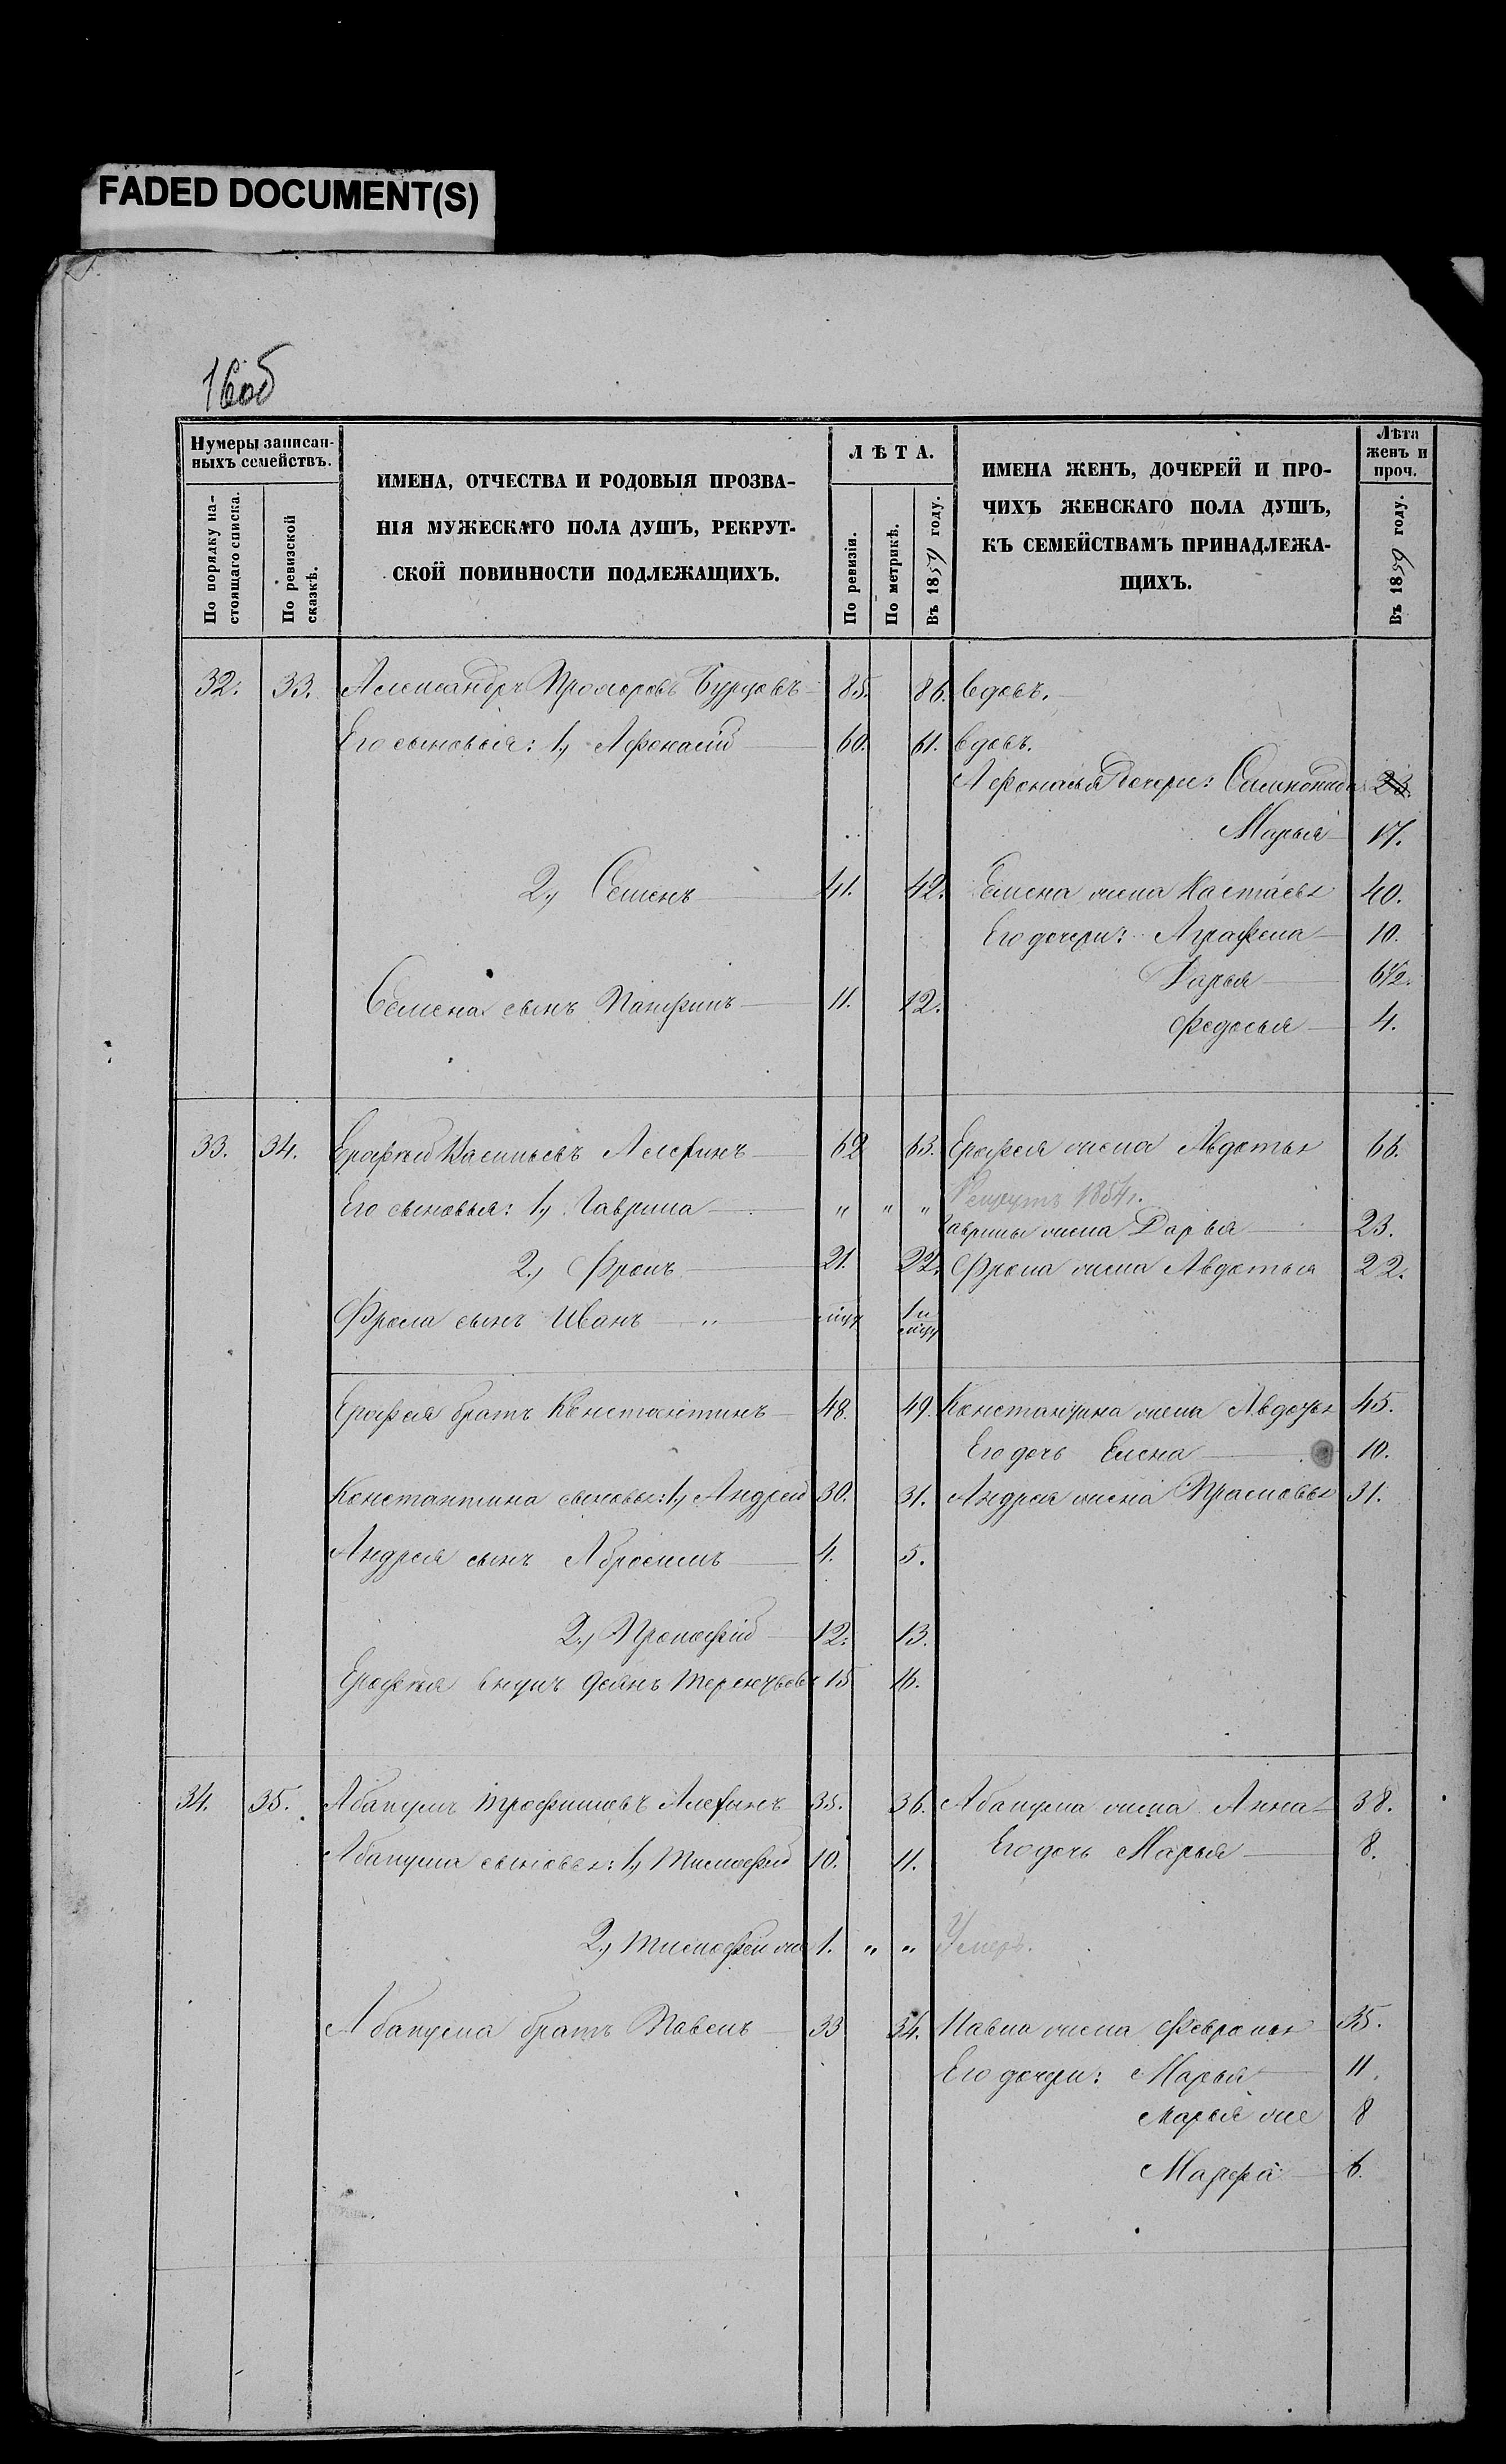 FADED DOCUMENT(S)
16об
Нумеры записан-
ныхъ семействъ.
По порядку на-
стоящаго списка.
По ревизской
сказкѣ.
ИМЕНА, ОТЧЕСТВА И РОДОВЫЯ ПРОЗВА-
НІЯ МУЖЕСКАГО ПОЛА ДУШЪ, РЕКРУТ-
СКОЙ ПОВИННОСТИ ПОДЛЕЖАЩИХЪ.
ЛѢТА.
По ревизіи.
По метрикѣ.
Въ 1859 году.
ИМЕНА ЖЕНЪ, ДОЧЕРЕЙ И ПРО-
ЧИХЪ ЖЕНСКАГО ПОЛА ДУШЪ,
КЪ СЕМЕЙСТВАМЪ ПРИНАДЛЕЖА-
ЩИХЪ.
Лѣта
женъ и
проч.
Въ 1859 году.
32. 33. Александръ Прохоровъ Бурцовъ 85. 86. вдовъ.
Его сыновья: 1, Афонасій 60. 61. вдовъ.
Афонасья дочери: 23.
Марья 17.
2, Семенъ 41. 42. Семена жена Настасья 40.
Его дочери: Аграфена 10.
Дарья 6½.
Семена сынъ Памфилъ 11. 12.
Федосья 4.
33. 34. Ерофей Васильевъ Алефинъ 62 63. Ерофея жена Авдотья 66.
Его сыновья: 1, Гаврила " " " Рекрутъ 1854 г.
Гаврилы жена Дарья 23.
2, Фролъ 21. 22. Фрола жена Авдотья 22.
Фрола сынъ Иванъ "
Ерофея братъ Константинъ 48. 49. Константина жена Авдотья 45.
Его дочь Елена 10.
Константина сыновья: 1, Андрей 30. 31. Андрея жена Прасковья 31.
Андрея сынъ Абросимъ 4. 5.
2, Прокофій 12. 13.
Ерофея внукъ Терентьевъ 15 16.
34. 35. Абакумъ Трофимовъ Алефинъ 35. 36. Абакума жена Анна 38.
Абакума сыновья: 1, Тимофей 10. 11. Его дочь Марья 8.
2, Тимофей же 1. " " Умеръ.
Абакума братъ Павелъ 33 34. Павла жена Февронья 35.
Его дочери: Марья 11.
Марья же 8
Марфа 6.